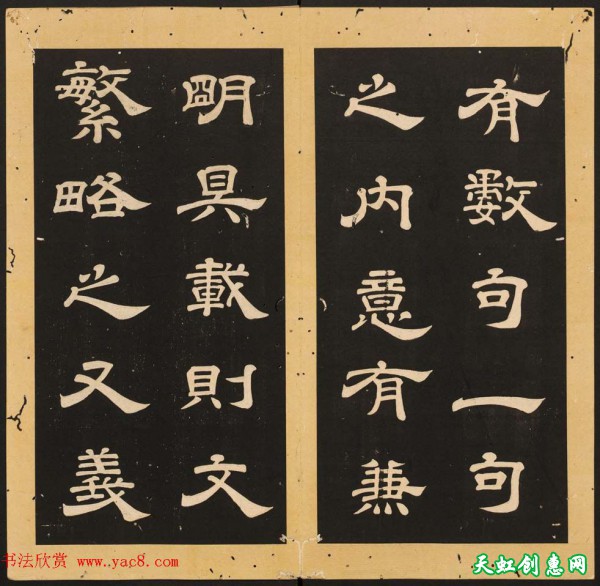 有數句一句
之内意有兼
明具載則文
繁略之又義
书法欣赏 www.yac8.com
天虹创惠网